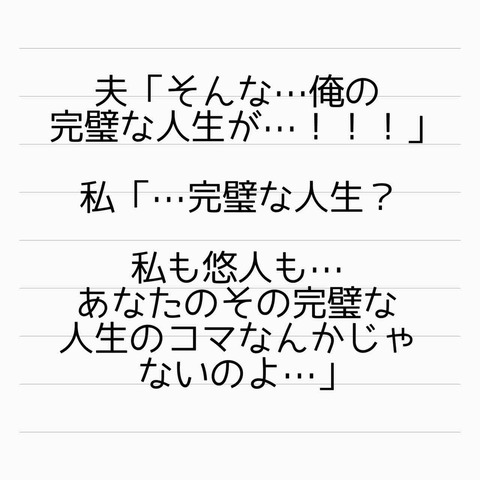 夫「そんな…俺の
完璧な人生が…！！！」
私「…完璧な人生？
私も悠人も…
あなたのその完璧な
人生のコマなんかじゃ
ないのよ…」